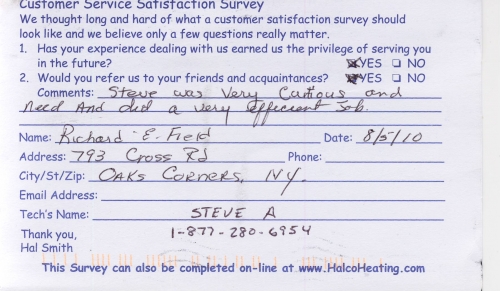 Customer Service Satisfaction Survey
We thought long and hard of what a customer satisfaction survey should
look like and we believe only a few questions really matter.
1. Has your experience dealing with us earned us the privilege of serving you
in the future? YES NO
2. Would you refer us to your friends and acquaintances? YES NO
Comments: Steve was Very Cautious and
Need And did a very Efficient Job.
Name: Richard E. Field Date: 8/5/10
Address: 793 Cross Rd Phone:
City/St/Zip: OAKS CORNERS, NY.
Email Address:
Tech's Name: STEVE A
Thank you, 1-877-280-6954
Hal Smith
This Survey can also be completed on-line at www.HalcoHeating.com